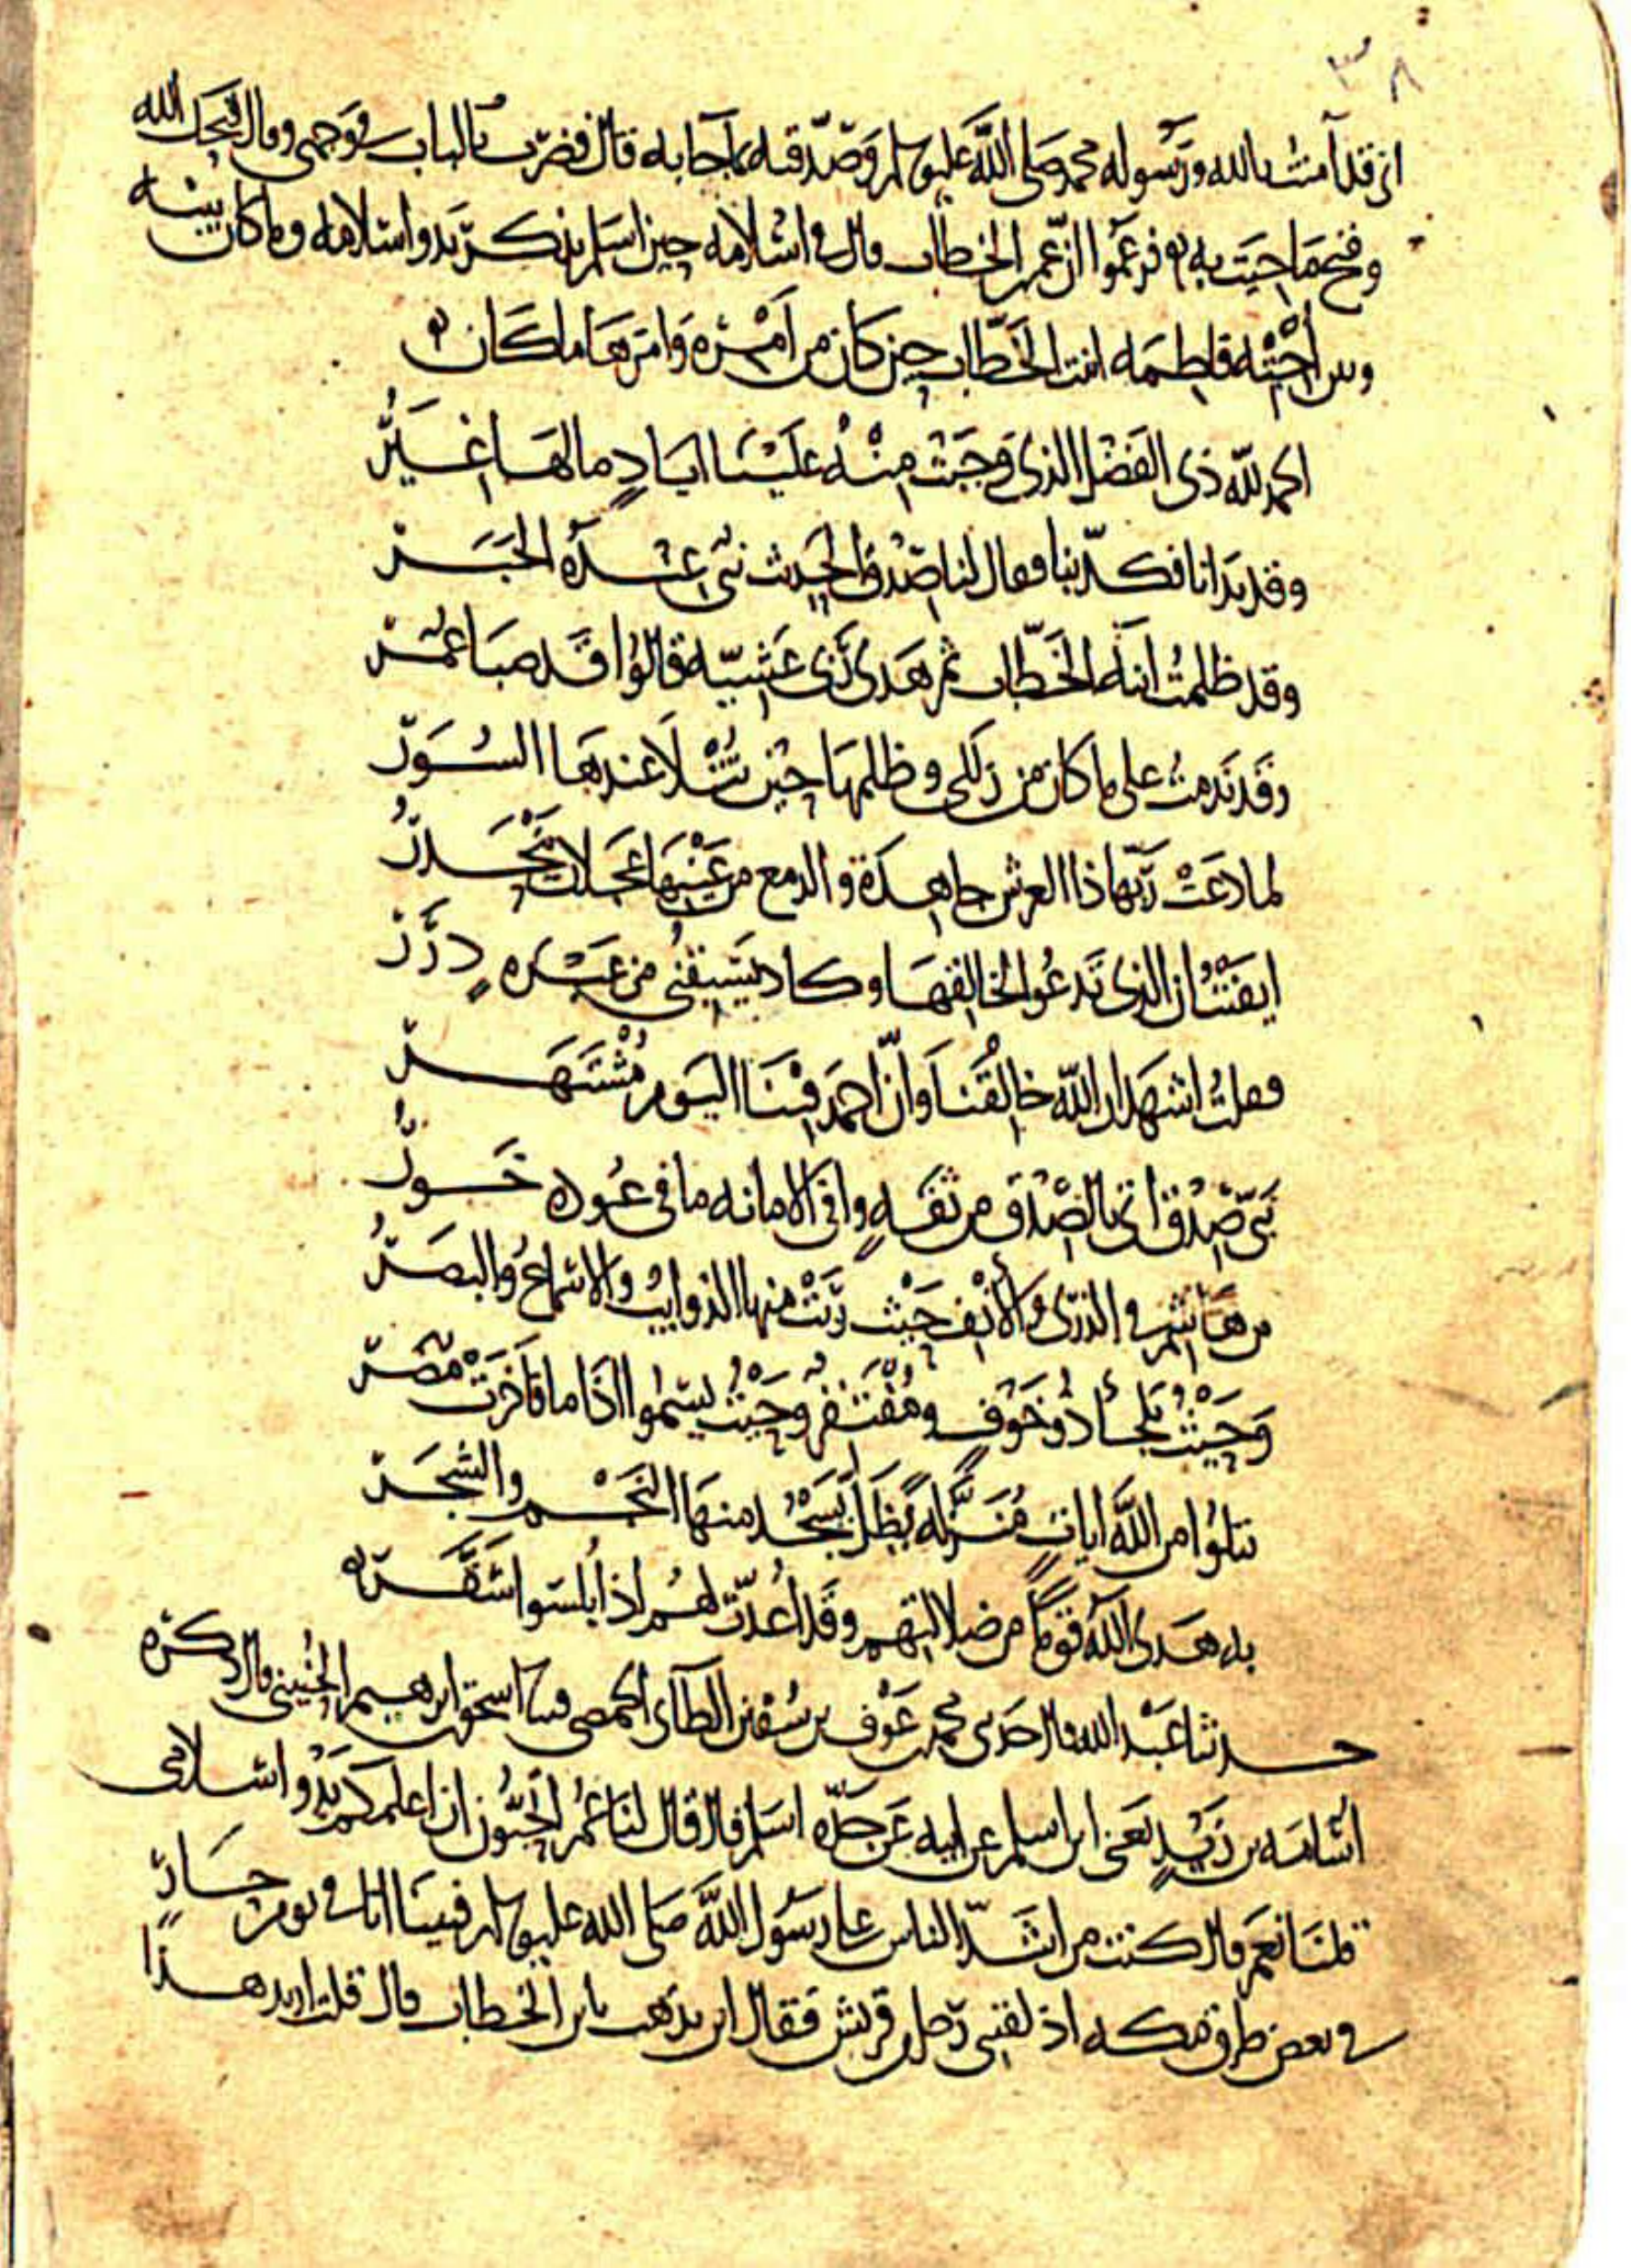 ٣٨
اني قد آمنت بالله ورسوله محمد صلى الله عليه وسلم وصدقته بما جا به قال فضرب بالباب في وجهي وقال قبحك الله
وقبح ما جيت به فزعموا ان عمر بن الخطاب قال في اسلامه حين اسلم يذكر بدو اسلامه وما كان بينه
وبين اخته فاطمه ابنت الخطاب حين كان من امره وامرها ما كان
الحمد لله ذي الفضل الذي وجبت منه علينا اياد ما لها غير
وقد بدانا فكذبنا فقال لنا صدق الحديث نبي عنده الخبر
وقد ظلمت ابنه الخطاب ثم هدى ربي عشية قالوا قد صبا عمر
وقد ندمت على ما كان من زللي وظلمها حين تتلا عندها السور
لما دعت ربها ذا العرش جاهدة والدمع من عينها عجلان يحدر
ايقنت ان الذي تدعوا لخالقها وكاد يسبقني من عبره درر
فقلت اشهد ان الله خالقنا وان احمد فينا اليوم مشتهر
نبي صدق اتى بالصدق من ثقه وافي الامانه ما في عوده خور
من هاشم في الذرى والانف حيث ربت منها الذوايب والاسماع والبصر
وحيث يلجأ ذو خوف ومفتقر وحيث يسموا اذا ما فاخرت مضر
يتلوا من الله ايات منزلة يظل يسجد منها النجم والشجر
به هدى الله قوما من ضلالتهم وقد اعدت لهم اذ ابلسوا سقر
حدثنا عبد الله قال حدثني محمد بن عوف بن سفين الطاي الحمصي قثنا اسحق بن ابرهيم الحنيني قال ذكره
اسامه بن زيد يعني ابن اسلم عن ابيه عن جده اسلم قال قال لنا عمر اتحبون ان اعلمكم بدو اسلامي
قلنا نعم قال كنت من اشد الناس على رسول الله صلى الله عليه وسلم فبينا انا في يوم حار
في بعض طرق مكه اذ لقيني رجل من قريش فقال اين يذهب يابن الخطاب قال قلت اريد هذا